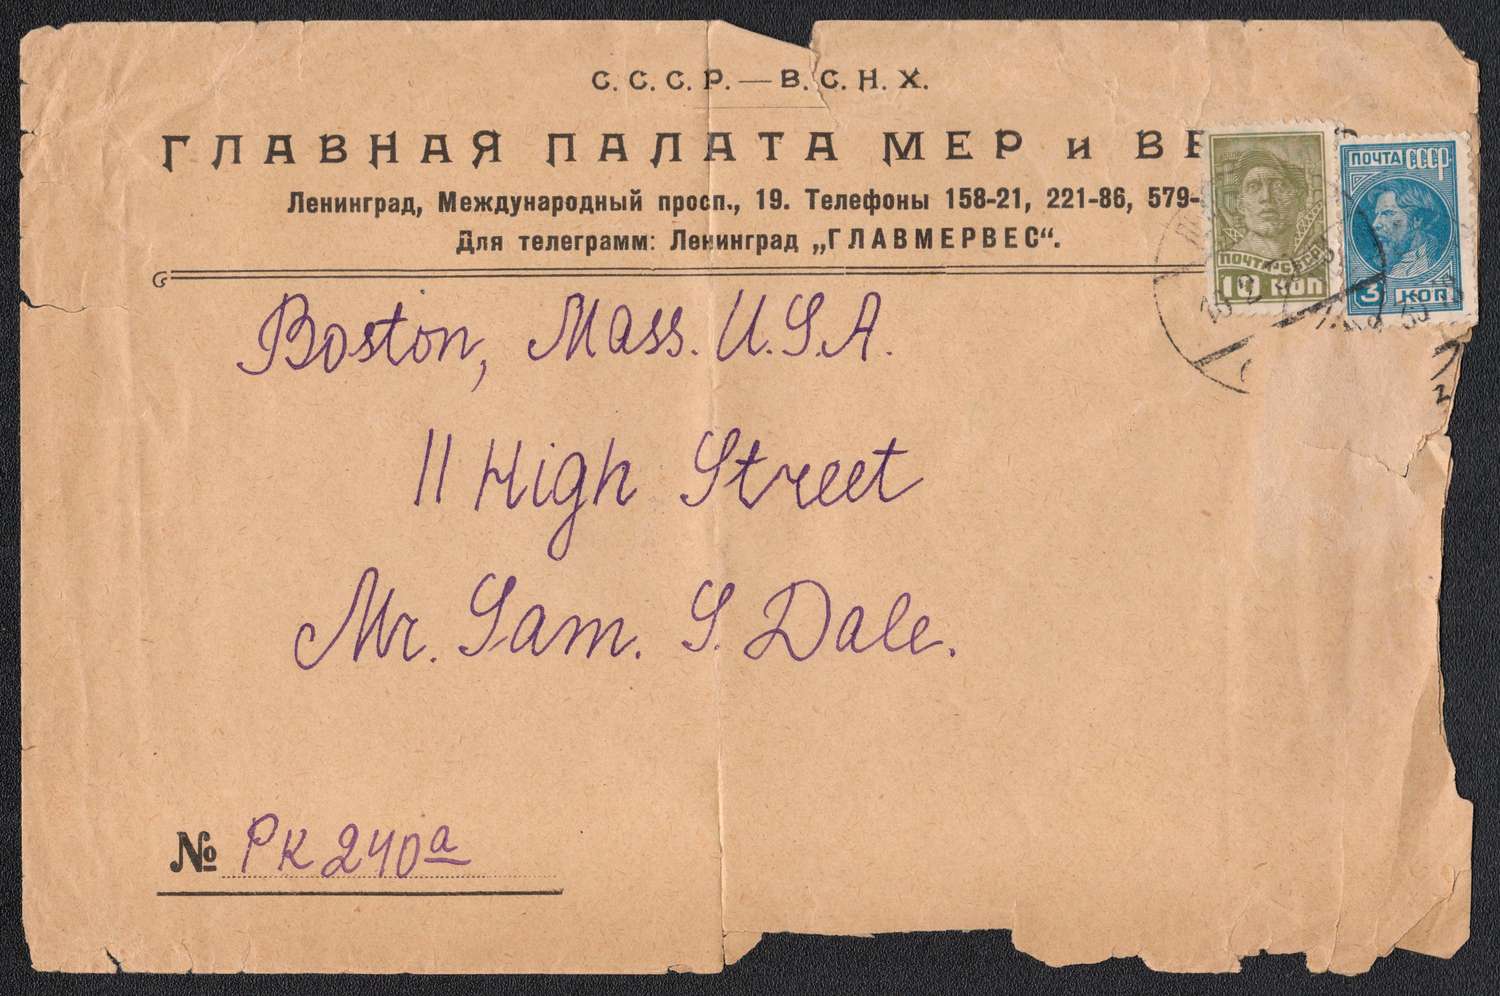 С. С. С. Р. — В. С. Н. Х.
ГЛАВНАЯ ПАЛАТА МЕР и
Ленинград, Международный просп., 19. Телефоны 158-21, 221-86, 579-
Для телеграмм: Ленинград „ГЛАВМЕРВЕС“.
ПОЧТА СССР
3 КОП
ПОЧТА·СССР
10 КОП
Boston, Mass. U.S.A.
11 High Street
Mr. Sam. S. Dale.
№ РК 240а